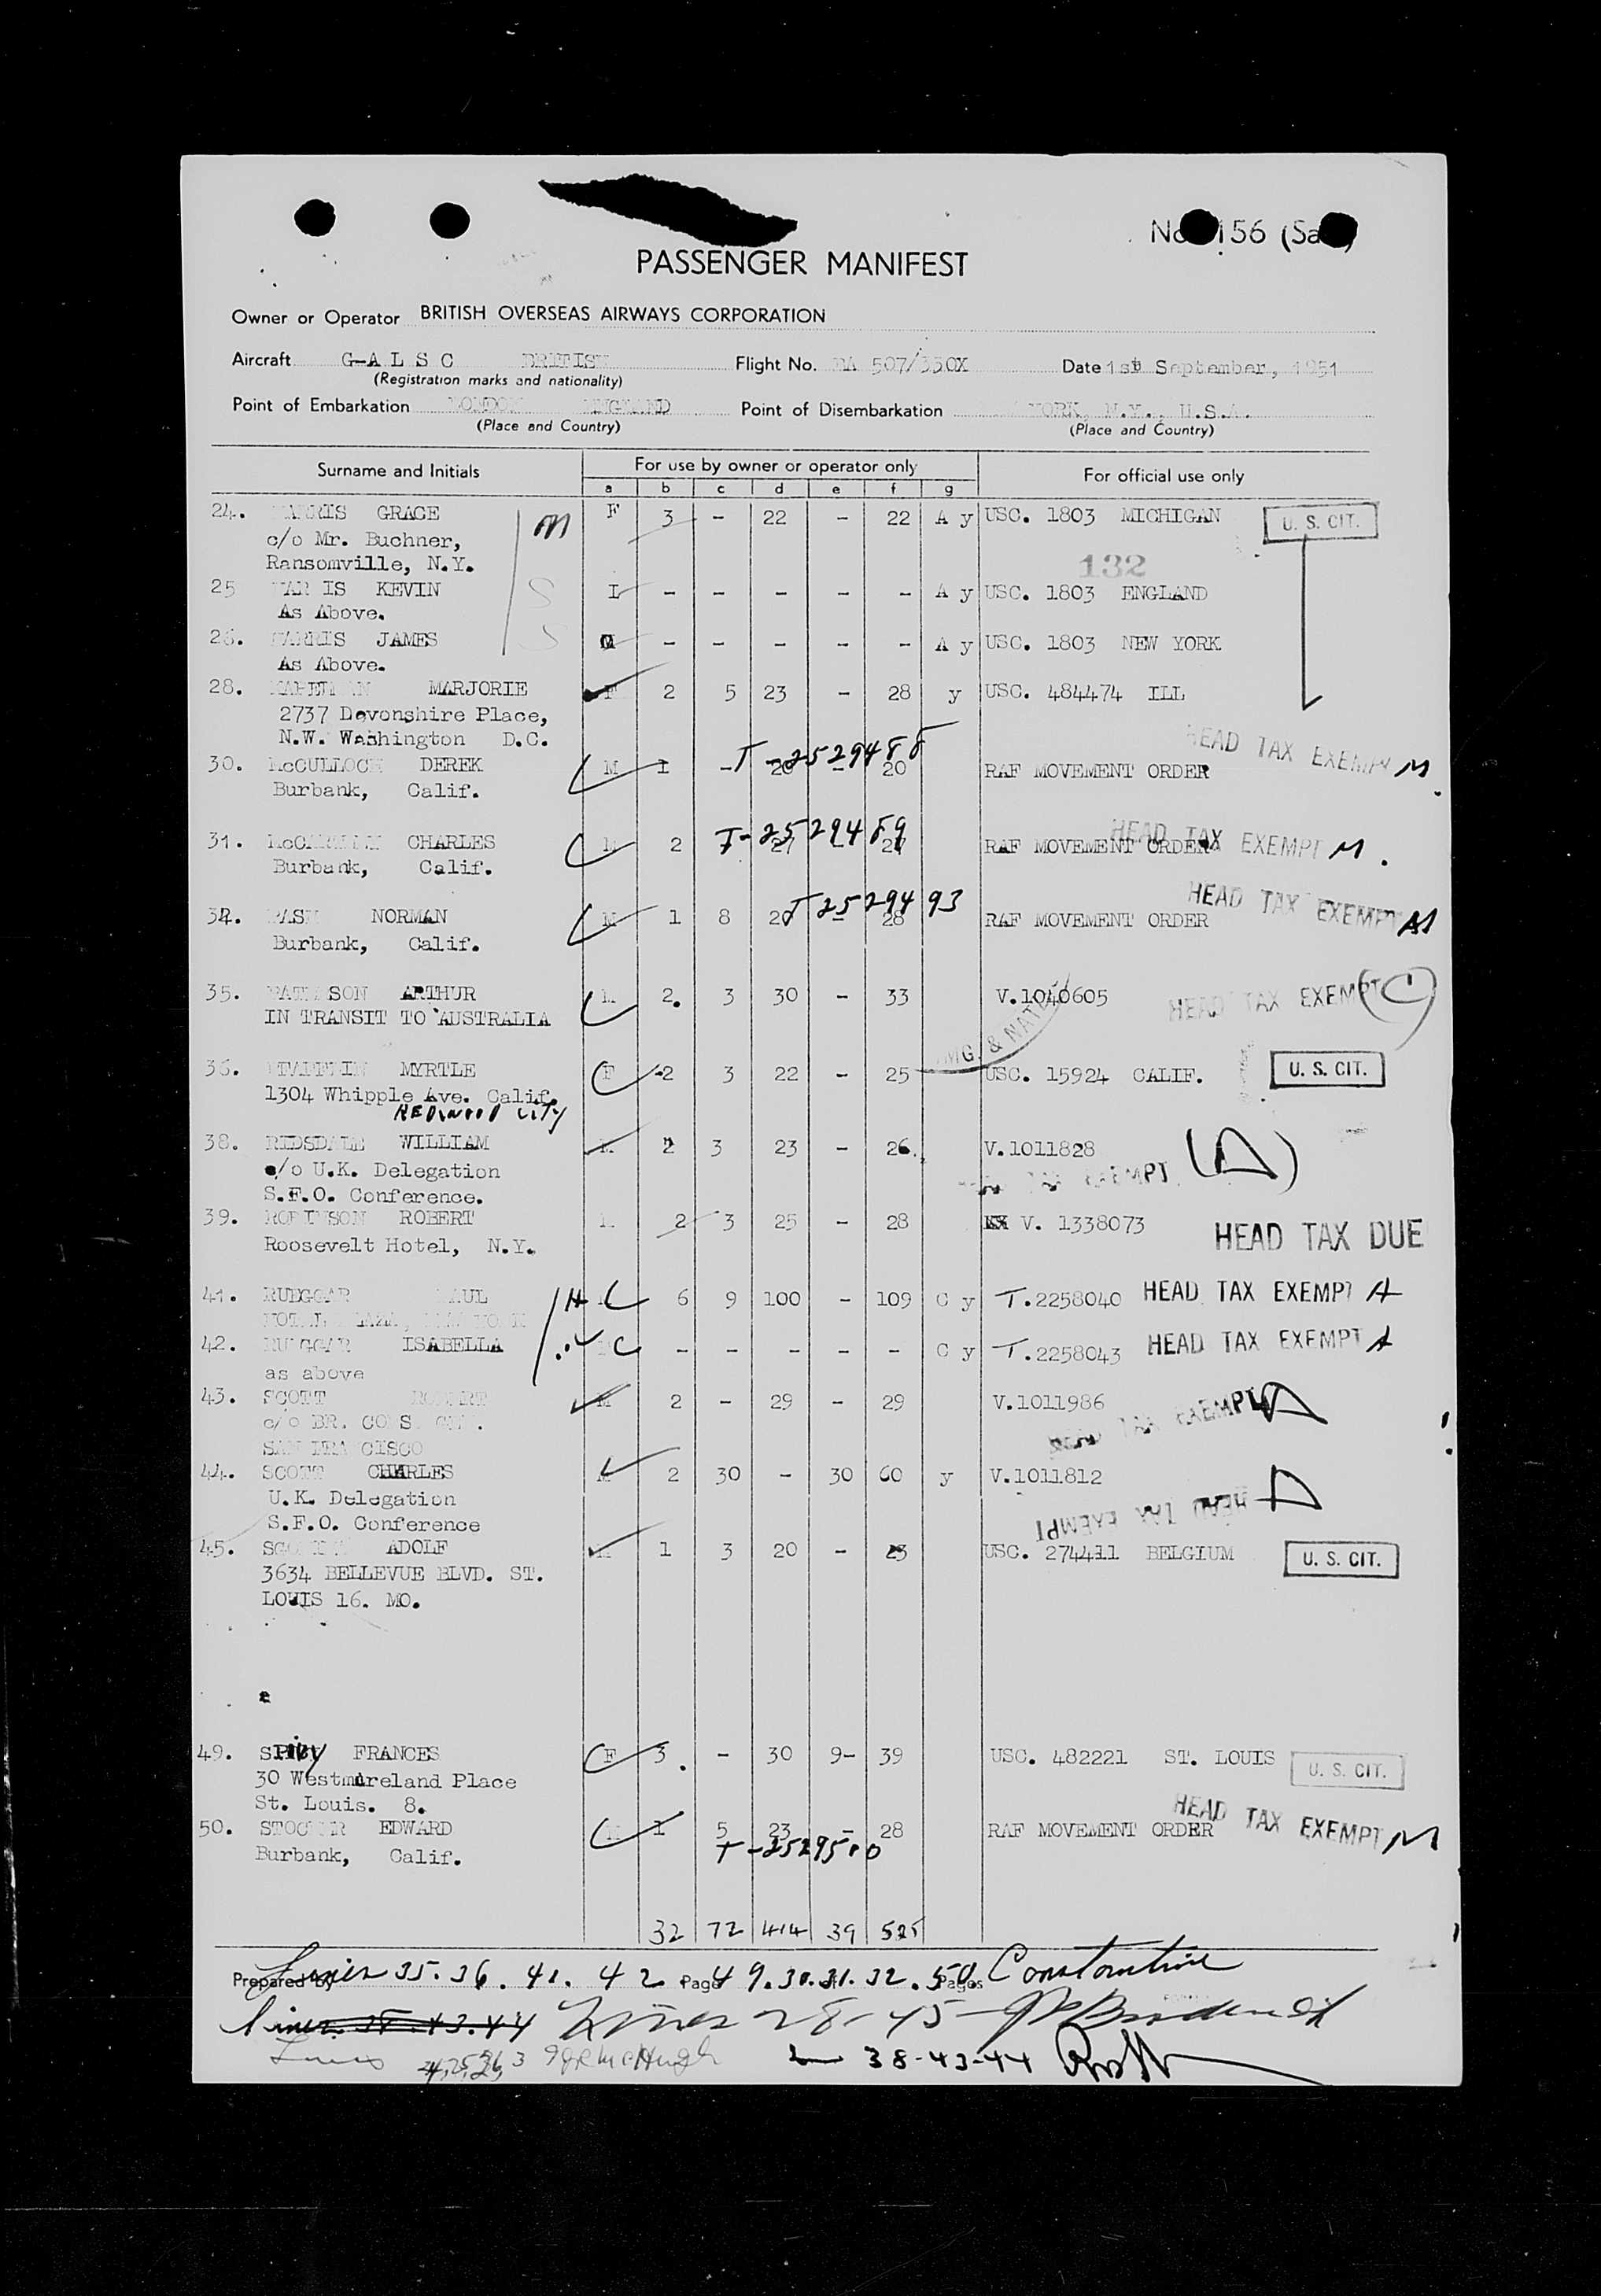 No 156 (Sa
PASSENGER MANIFEST
Owner or Operator BRITISH OVERSEAS AIRWAYS CORPORATION
Aircraft G-A L S C BRITISH Flight No. BA 507/330X Date 1st September, 1951
(Registration marks and nationality)
Point of Embarkation LONDON ENGLAND Point of Disembarkation YORK, N.Y., U.S.A.
(Place and Country) (Place and Country)
Surname and Initials For use by owner or operator only For official use only
a b c d e f g
24. HARRIS GRACE M F 3 - 22 - 22 A y USC. 1803 MICHIGAN U. S. CIT.
c/o Mr. Buchner,
Ransomville, N.Y. 132
25 HAR IS KEVIN S I - - - - - A y USC. 1803 ENGLAND
As Above.
26. HARRIS JAMES S - - - - - A y USC. 1803 NEW YORK
As Above.
28. MARJORIE F 2 5 23 - 28 y USC. 484474 ILL
2737 Devonshire Place,
N.W. Washington D.C.
T-2529488 HEAD TAX EXEMPT M
30. McCULLOCH DEREK M 1 - 20 - 20 RAF MOVEMENT ORDER
Burbank, Calif.
T-2529489 HEAD TAX EXEMPT M.
31. CHARLES M 2 27 - 27 RAF MOVEMENT ORDER
Burbank, Calif.
T 2529493 HEAD TAX EXEMPT M
34. NORMAN M 1 8 20 - 28 RAF MOVEMENT ORDER
Burbank, Calif.
35. ARTHUR M 2. 3 30 - 33 V.1040605 HEAD TAX EXEMPT C
IN TRANSIT TO AUSTRALIA
IMG. & NATZ
36. MYRTLE F 2 3 22 - 25 USC. 15924 CALIF. U. S. CIT.
1304 Whipple Ave. Calif.
REDWOOD CITY
38. RIDSDALE WILLIAM M 2 3 23 - 26 V.1011828 (A)
c/o U.K. Delegation HEAD TAX EXEMPT
S.F.O. Conference.
39. ROBINSON ROBERT M 2 3 25 - 28 V. 1338073 HEAD TAX DUE
Roosevelt Hotel, N.Y.
41. RUEGGAR PAUL H C 6 9 100 - 109 C y T.2258040 HEAD TAX EXEMPT A
42. RUEGGAR ISABELLA C - - - - - C y T.2258043 HEAD TAX EXEMPT A
as above
43. SCOTT ROBERT M 2 - 29 - 29 V.1011986
c/o BR. CONS. GEN. HEAD TAX EXEMPT A
SAN FRANCISCO
44. SCOTT CHARLES M 2 30 - 30 60 y V.1011812
U.K. Delegation HEAD TAX EXEMPT A
S.F.O. Conference
45. ADOLF M 1 3 20 - 23 USC. 274411 BELGIUM U. S. CIT.
3634 BELLEVUE BLVD. ST.
LOUIS 16. MO.
49. FRANCES F 3. - 30 9- 39 USC. 482221 ST. LOUIS U. S. CIT.
30 Westmoreland Place
St. Louis. 8.
50. EDWARD M 1 5 23 - 28 RAF MOVEMENT ORDER HEAD TAX EXEMPT M
Burbank, Calif. T-2529500
32 72 414 39 525
Prepared by Lines 35. 36. 41. 42 Page 49. 30. 31. 32. 50 Pages Constantine
Lines 38. 43. 44 Lines 28-45
Lines 24, 25, 26, 38-43-44